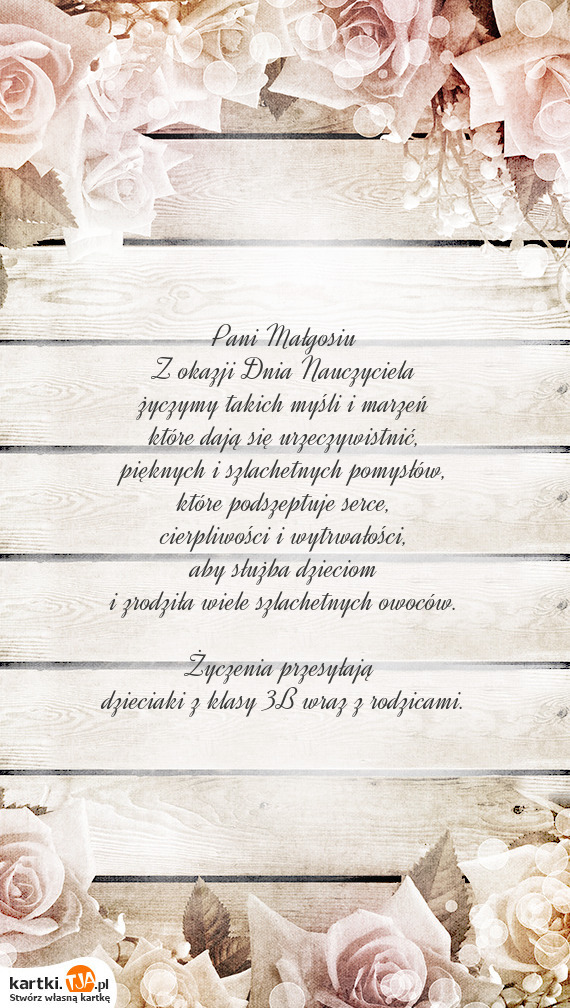 Pani Małgosiu
Z okazji Dnia Nauczyciela
życzymy takich myśli i marzeń
które dają się urzeczywistnić,
pięknych i szlachetnych pomysłów,
które podszeptuje serce,
cierpliwości i wytrwałości,
aby służba dzieciom
i zrodziła wiele szlachetnych owoców.
Życzenia przesyłają
dzieciaki z klasy 3B wraz z rodzicami.
kartki.TJA.pl
Stwórz własną kartkę